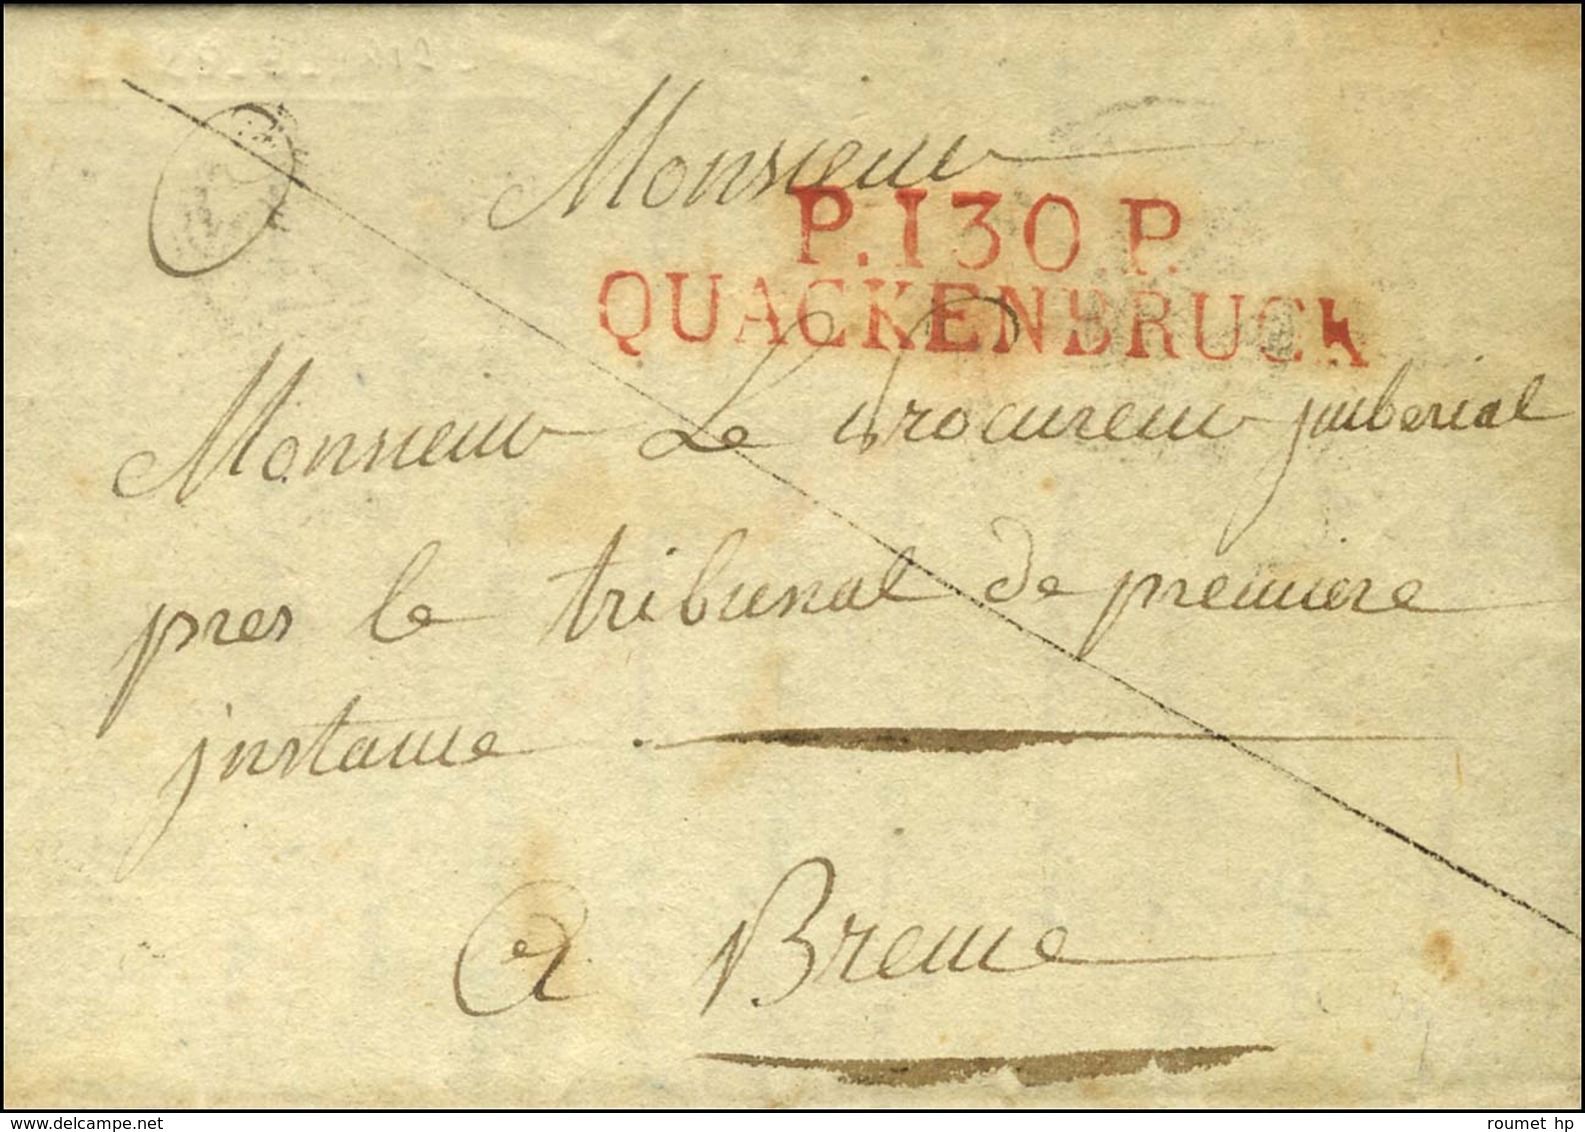 Monsieur
P.130 P.
QUACKENBRUCK
Monsieur Le procureur jmberial
pres le tribunal de premiere
jnstance
a Breme
roumet hp